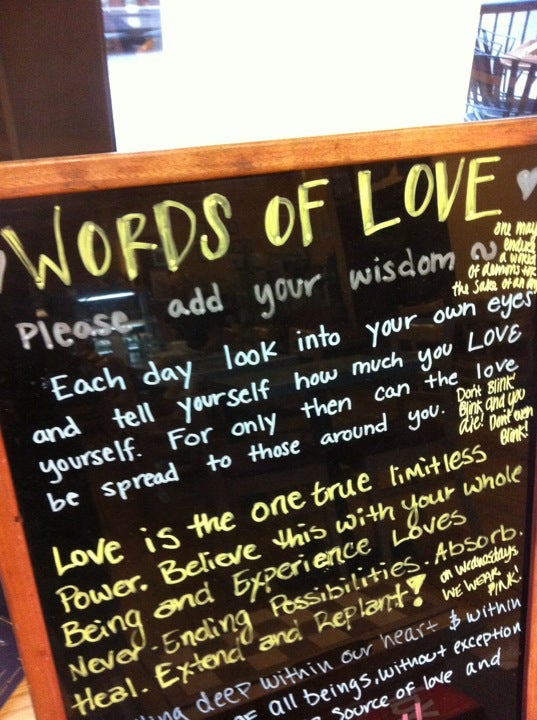 WORDS OF LOVE
Please add your wisdom
one may
endure
a world
of demons for
the sake of an
Each day look into your own eyes
and tell yourself how much you LOVE
yourself. For only then can the love
be spread to those around you.
Don't Blink!
Blink and you
die! Don't even
Blink!
Love is the one true limitless
Power. Believe this with your whole
Being and Experience Loves
Never-Ending Possibilities. Absorb.
Heal. Extend and Replant!
on Wednesdays
WE WEAR
PINK!
deep within our heart & within
of all beings, without exception
source of love and